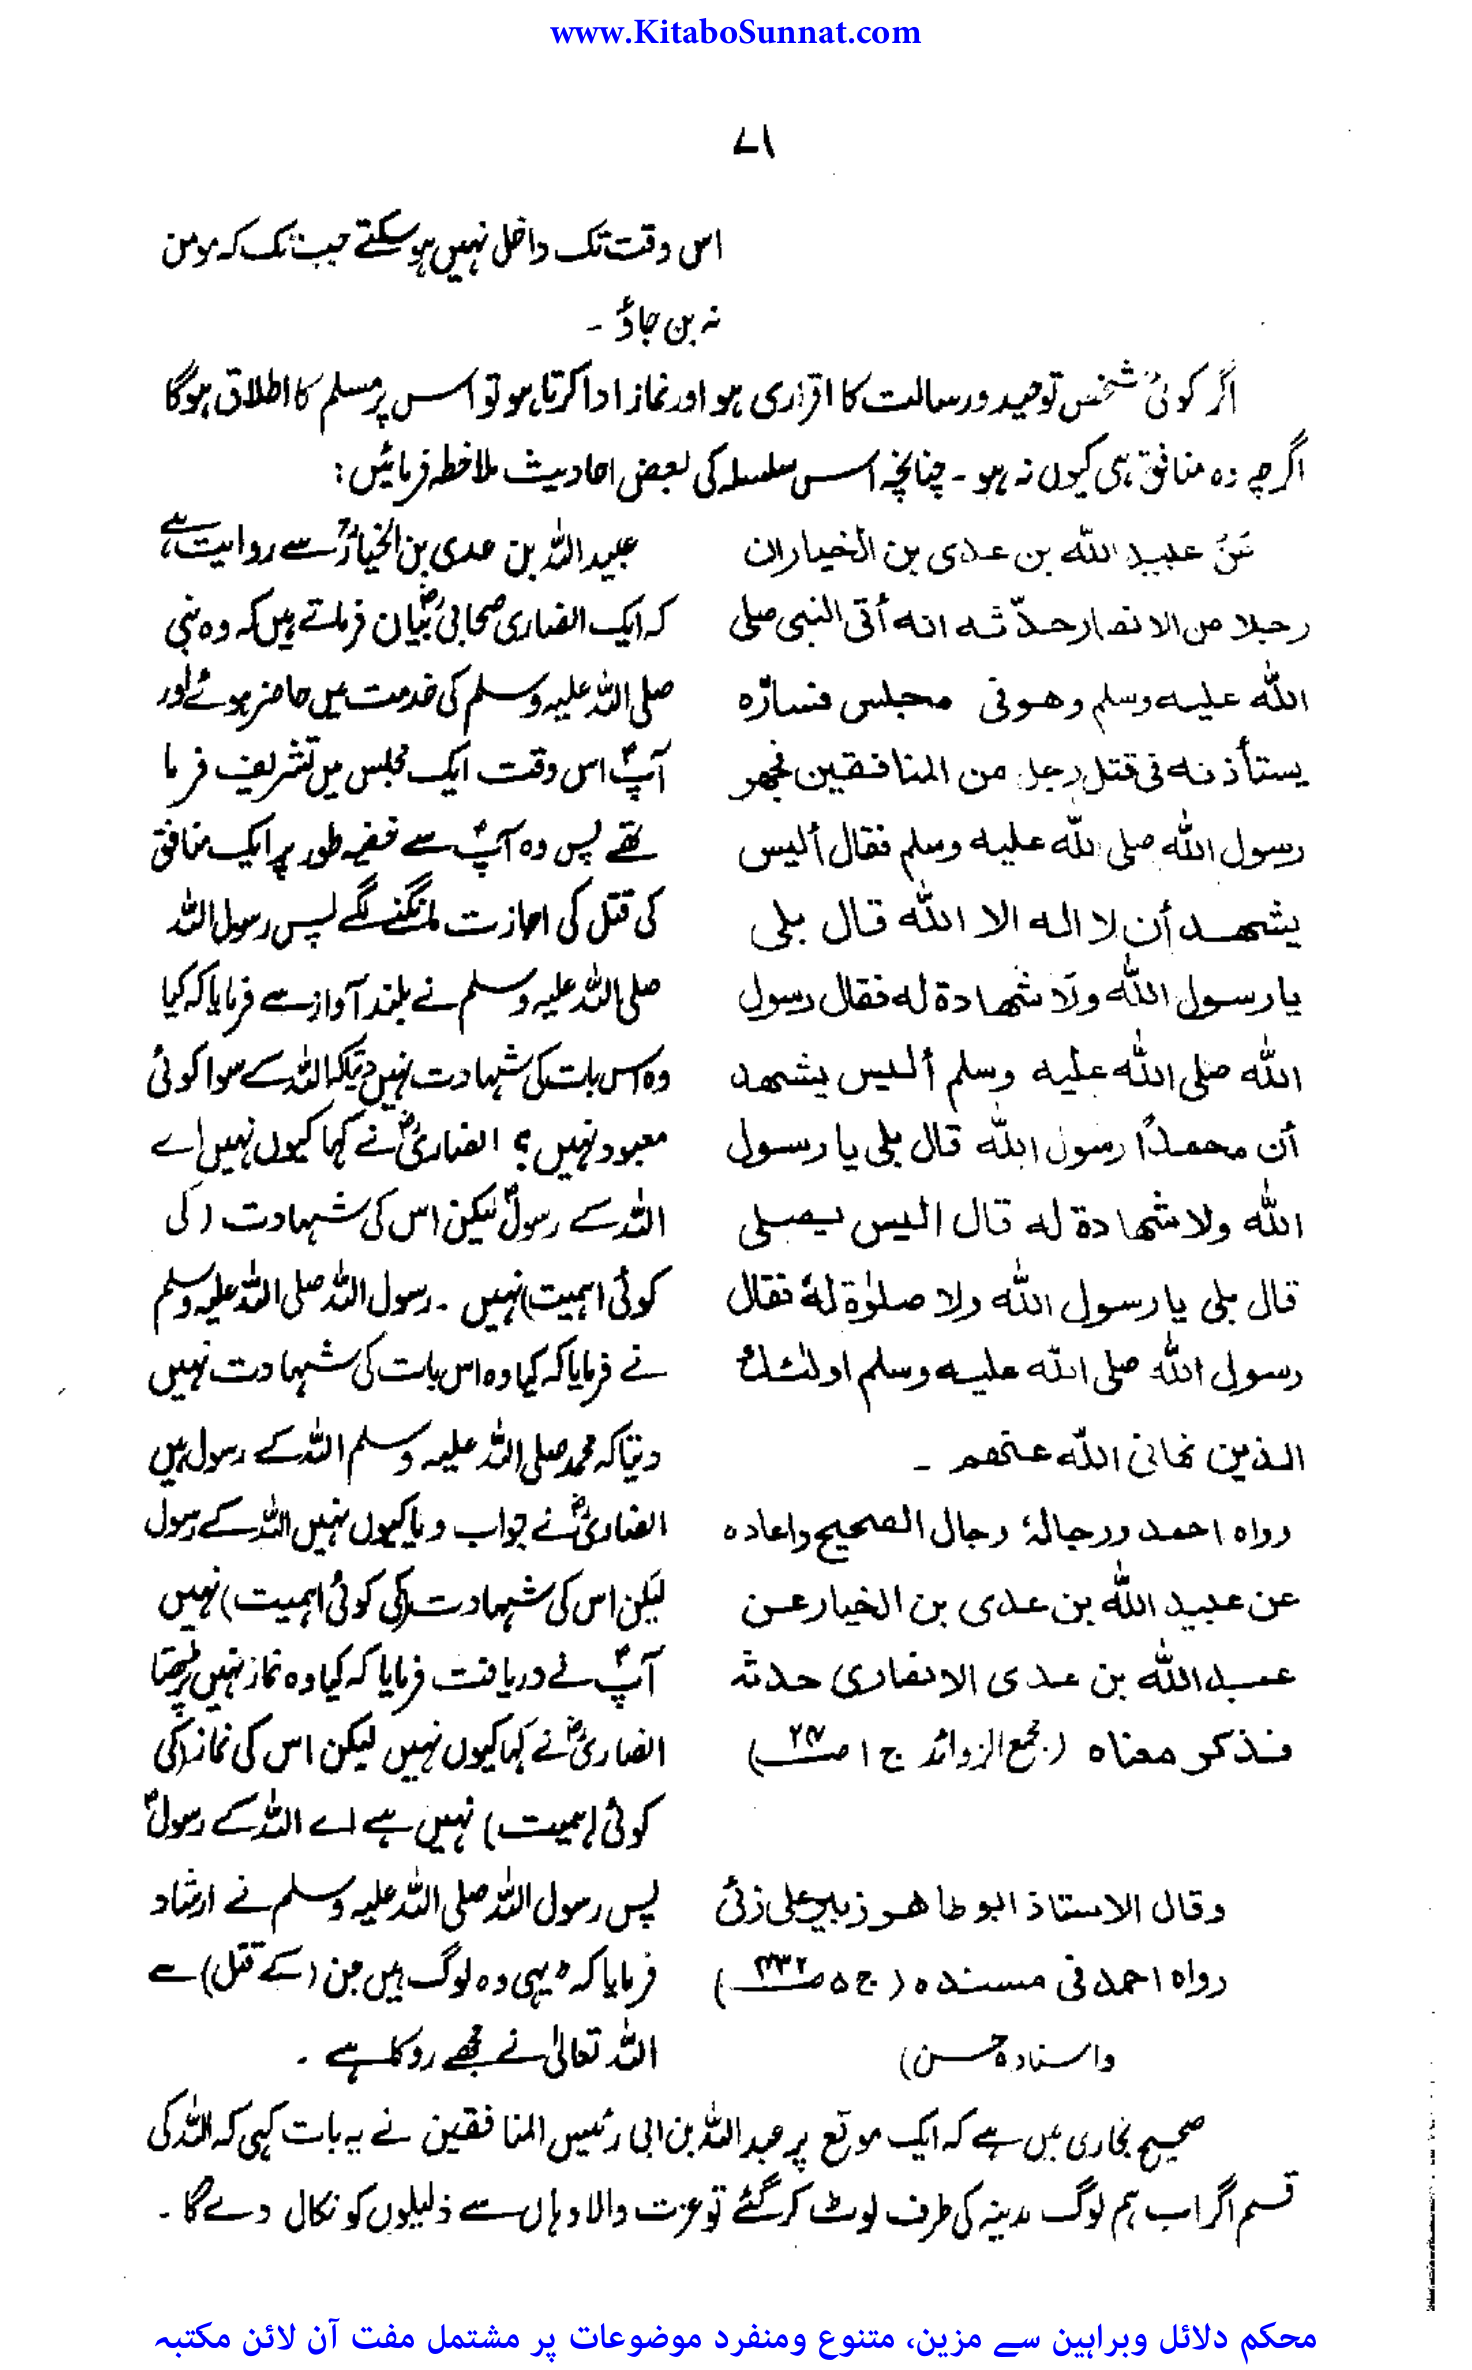 www.KitaboSunnat.com
۷۱
اس وقت تک داخل نہیں ہو سکتے جب تک کہ مومن
نہ بن جاؤ ۔
اگر کوئی شخص توحید و رسالت کا اقراری ہو اور نماز ادا کرتا ہو تو اس پر مسلم کا اطلاق ہوگا
اگرچہ وہ منافق ہی کیوں نہ ہو ۔ چنانچہ اس سلسلہ کی بعض احادیث ملاحظہ فرمائیں :
عن عبيد الله بن عدى بن الخيار ان
رجلا من الانصار حدّثه انه أتى النبى صلى
الله عليه وسلم وهو فى مجلس فسارّه
يستأذنه فى قتل رجل من المنافقين فجهر
رسول الله صلى الله عليه وسلم فقال أليس
يشهد أن لا اله الا الله قال بلى
يا رسول الله ولا شهادة له فقال رسول
الله صلى الله عليه وسلم أليس يشهد
أن محمدًا رسول الله قال بلى يا رسول
الله ولا شهادة له قال اليس يصلى
قال بلى يا رسول الله ولا صلوٰة لهٗ فقال
رسول الله صلى الله عليه وسلم اولئك
الذين نهانى الله عنهم ۔
رواه احمد ورجالهٗ رجال الصحيح واعاده
عن عبيد الله بن عدى بن الخيار عن
عبد الله بن عدى الانصارى حدثه
فذكر معناه (مجمع الزوائد ج ۱ ص ۲۴)
وقال الاستاذ ابو طاهر زبير على زئى
رواه احمد فى مسنده (ج ۵ ص ۴۳۲)
واسناده حسن)
عبید اللہ بن عدی بن الخیارؒ سے روایت ہے
کہ ایک انصاری صحابیؓ بیان فرماتے ہیں کہ وہ نبی
صلی اللہ علیہ وسلم کی خدمت میں حاضر ہوئے اور
آپؐ اس وقت ایک مجلس میں تشریف فرما
تھے پس وہ آپؐ سے خفیہ طور پر ایک منافق
کی قتل کی اجازت مانگنے لگے پس رسول اللہ
صلی اللہ علیہ وسلم نے بلند آواز سے فرمایا کہ کیا
وہ اس بات کی شہادت نہیں دیتا کہ اللہ کے سوا کوئی
معبود نہیں؟ انصاریؓ نے کہا کیوں نہیں اے
اللہ کے رسولؐ لیکن اس کی شہادت (کی
کوئی اہمیت) نہیں ۔ رسول اللہ صلی اللہ علیہ وسلم
نے فرمایا کہ کیا وہ اس بات کی شہادت نہیں
دیتا کہ محمد صلی اللہ علیہ وسلم اللہ کے رسول ہیں
انصاریؓ نے جواب دیا کیوں نہیں اللہ کے رسول
لیکن اس کی شہادت (کی کوئی اہمیت) نہیں
آپؐ نے دریافت فرمایا کہ کیا وہ نماز نہیں پڑھتا
انصاریؓ نے کہا کیوں نہیں لیکن اس کی نماز (کی
کوئی اہمیت) نہیں ہے اے اللہ کے رسولؐ
پس رسول اللہ صلی اللہ علیہ وسلم نے ارشاد
فرمایا کہ یہی وہ لوگ ہیں جن (کے قتل) سے
اللہ تعالیٰ نے مجھے روکا ہے ۔
صحیح بخاری میں ہے کہ ایک موقع پر عبد اللہ بن ابی رئیس المنافقین نے یہ بات کہی کہ اللہ کی
قسم اگر اب ہم لوگ مدینہ کی طرف لوٹ کر گئے تو عزت والا وہاں سے ذلیلوں کو نکال دے گا ۔
محکم دلائل وبراہین سے مزین، متنوع ومنفرد موضوعات پر مشتمل مفت آن لائن مکتبہ